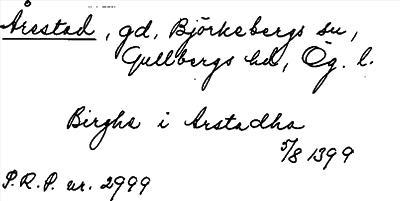 Årestad, gd, Björkebergs sn,
Gullbergs hd, Ög. l.
Birghe i Arstadha
5/8 1399
S.R.P. nr. 2999